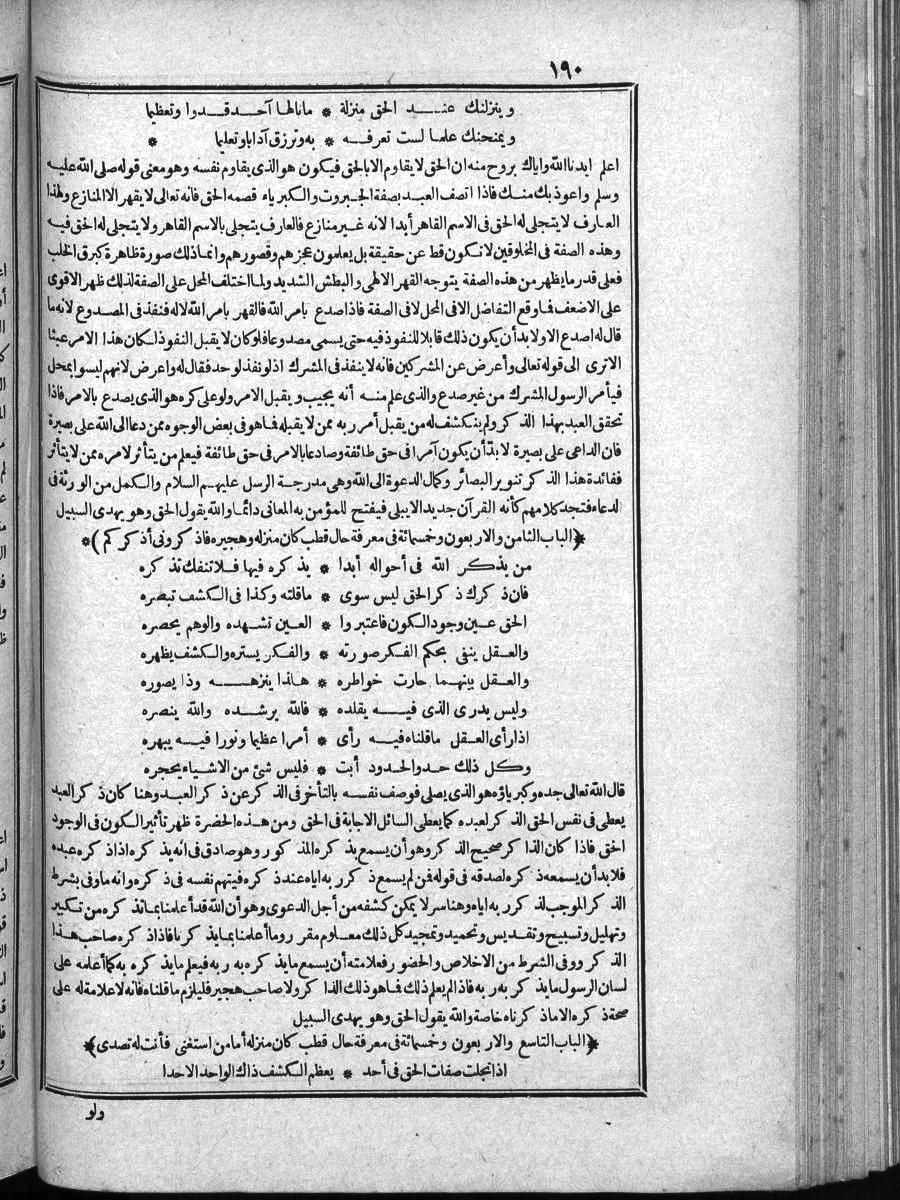 ١٩٠
وينزلنك عند الحق منزلة * مانالها أحد قدرا وتعظيما
ويمنحنك علما لست تعرفه * به وترزق آدابا وتعليما *
اعلم ايدنا الله واياك بروح منه ان الحق لا يقاوم الا بالحق فيكون هو الذى يقاوم نفسه وهو معنى قوله صلى الله عليه
وسلم واعوذ بك منك فاذا اتصف العبد بصفة الجبروت والكبرياء قصمه الحق فانه تعالى لا يقهر الا المنازع ولهذا
العارف لا يتجلى له الحق فى الاسم القاهر أبدا لانه غير منازع فالعارف يتجلى بالاسم القاهر ولا يتجلى له الحق فيه
وهذه الصفة فى المخلوقين لا تكون قط عن حقيقة بل يعلمون عجزهم وقصورهم وانما ذلك صورة ظاهرة كبرق الخلب
فعلى قدر ما يظهر من هذه الصفة يتوجه القهر الالهى والبطش الشديد ولما اختلف المحل على الصفة لذلك ظهر الاقوى
على الاضعف فما وقع التفاضل الا فى المحل لا فى الصفة فاذا صدع بامر الله فالقهر بامر الله لا له فنفذ فى المصدوع لانه ما
قال له اصدع الا ولا بد أن يكون ذلك قابلا للنفوذ فيه حتى يسمى مصدوعا فلو كان لا يقبل النفوذ لكان هذا الامر عبثا
الا ترى الى قوله تعالى وأعرض عن المشركين فانه لا ينفذ فى المشرك اذ لو نفذ لوحد فقال له واعرض لانهم ليسوا بمحل
فيأمر الرسول المشرك من غير صدع والذى علم منه أنه يجيب ويقبل الامر ولو على كره هو الذى يصدع بالامر فاذا
تحقق العبد بهذا الذكر ولم ينكشف له من يقبل أمر ربه ممن لا يقبله فما هو فى بعض الوجوه ممن دعا الى الله على بصيرة
فان الداعى على بصيرة لا بد أن يكون آمرا فى حق طائفة وصادعا بالامر فى حق طائفة فيعلم من يتأثر لامره ممن لا يتأثر
ففائدة هذا الذكر تنوير البصائر وكمال الدعوة الى الله وهى مدرجة الرسل عليهم السلام والكمل من الورثة فى
الدعاء فتجد كلامهم كأنه القرآن جديد الا يبلى فيفتح للمؤمن به المعانى دائما والله يقول الحق وهو يهدى السبيل
*(الباب الثامن والاربعون وخمسمائة فى معرفة حال قطب كان منزله وهجيره فاذكرونى أذكركم)*
من يذكر الله فى أحواله أبدا * يذكره فيها فلا تنفك تذكره
فان ذكرك ذكر الحق ليس سوى * ما قلته وكذا فى الكشف تبصره
الحق عين وجود الكون فاعتبروا * العين تشهده والوهم يحصره
والعقل ينفى بحكم الفكر صورته * والفكر يستره والكشف يظهره
والعقل بينهما حارت خواطره * هذا ينزهه وذا يصوره
وليس يدرى الذى فيه يقلده * فالله يرشده والله ينصره
اذا رأى العقل ما قلناه فيه رأى * أمرا عظيما ونورا فيه يبهره
وكل ذلك حد والحدود أبت * فليس شئ من الاشياء يحجره
قال الله تعالى جده وكبرياؤه هو الذى يصلى فوصف نفسه بالتأخر فى الذكر عن ذكر العبد وهنا كان ذكر العبد
يعطى فى نفس الحق الذكر لعبده كما يعطى السائل الاجابة فى الحق ومن هذه الحضرة ظهر تأثير الكون فى الوجود
الحق فاذا كان الذاكر صحيح الذكر وهو أن يسمع بذكره المذكور وهو صادق فى انه يذكره اذا ذكره عبده
فلا بد أن يسمعه ذكره لصدقه فى قوله فمن لم يسمع ذكر ربه اياه عند ذكره فيتهم نفسه فى ذكره وانه ما وفى بشرط
الذكر الموجب لذكر ربه اياه وهنا سر لا يمكن كشفه من أجل الدعوى وهو أن الله قد أعلمنا بما نذكره من تكبير
وتهليل وتسبيح وتقديس وتحميد وتمجيد كل ذلك معلوم مقرر وما أعلمنا بما يذكرنا فاذا ذكره صاحب هذا
الذكر ووفى الشرط من الاخلاص والحضور فعلامته أن يسمع ما يذكره به ربه فيعلم ما يذكره به كما أعلمه على
لسان الرسول ما يذكر به ربه فاذا لم يعلم ذلك فما هو ذلك الذاكر ولا صاحب هجير فليلزم ما قلناه فانه لا علامة له على
صحة ذكره الا ما ذكرناه خاصة والله يقول الحق وهو يهدى السبيل
*(الباب التاسع والاربعون وخمسمائة فى معرفة حال قطب كان منزله أما من استغنى فأنت له تصدى)*
اذا تجلت صفات الحق فى أحد * يعظم الكشف ذاك الواحد الاحدا
ولو